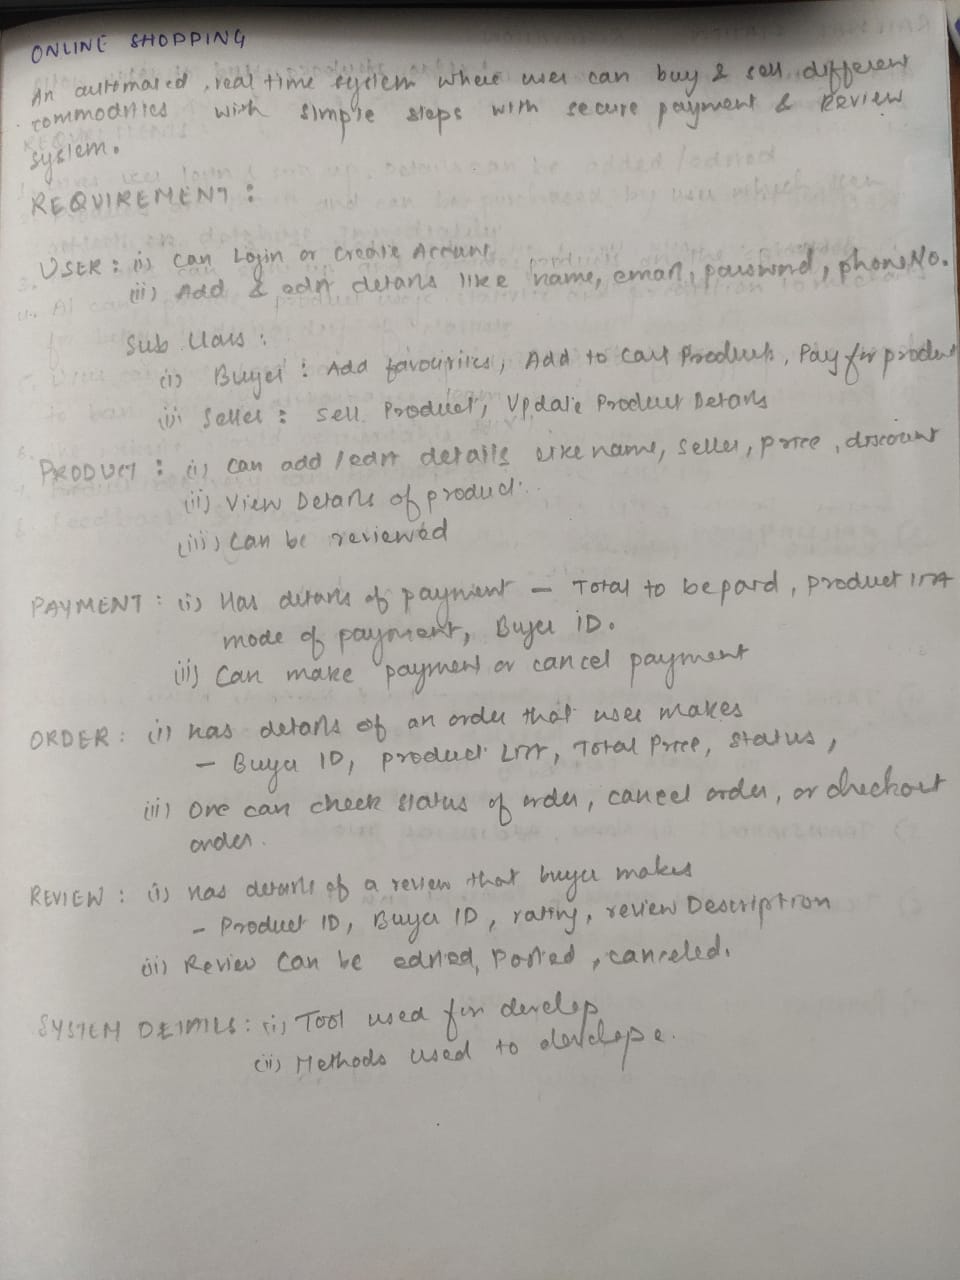 ONLINE SHOPPING
An automated, real time system where user can buy & sell different
commodities with simple steps with secure payment & Review
system.
REQUIREMENT :
USER : (i) Can Login or Create Account
(ii) Add & edit details like name, email, password, phone No.
Sub Class :
(i) Buyer : Add favourites, Add to cart Products, Pay for product
(ii) Seller : Sell Product, Update Product Details
PRODUCT : (i) Can add / edit details like name, seller, price, discount
(ii) View Details of product.
(iii) Can be reviewed
PAYMENT : (i) Has details of payment - Total to be paid, product list
mode of payment, Buyer ID.
(ii) Can make payment or cancel payment
ORDER : (i) has details of an order that user makes
- Buyer ID, product List, Total Price, status,
(ii) One can check status of order, cancel order, or checkout
order.
REVIEW : (i) has details of a review that buyer makes
- Product ID, Buyer ID, rating, review Description
(ii) Review Can be edited, Posted, canceled.
SYSTEM DETAILS : (i) Tool used for develop
(ii) Methods used to develope.